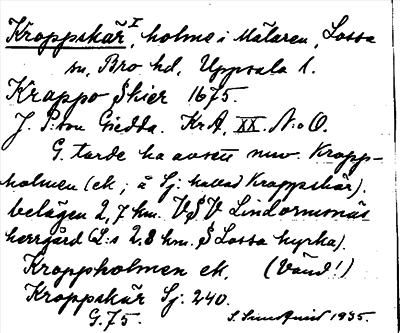 Kroppskär I, holme i Mälaren, Lossa
sn, Bro hd, Uppsala l.
Krappo Skier 1675.
J. P:son Giedda. KrA, XX. N:o O.
G. torde ha avsett nuv. Kropp-
holmen (ek; å Sj: kallad Kroppskär).
belägen 2,7 km. VSV Lindormsnäs
herrgård (L:s 2,8 km. S Lossa kyrka).
Kroppholmen ek. (Vänd!)
Kroppskär Sj. 240.
G. 75.
S. Sundquist 1935.